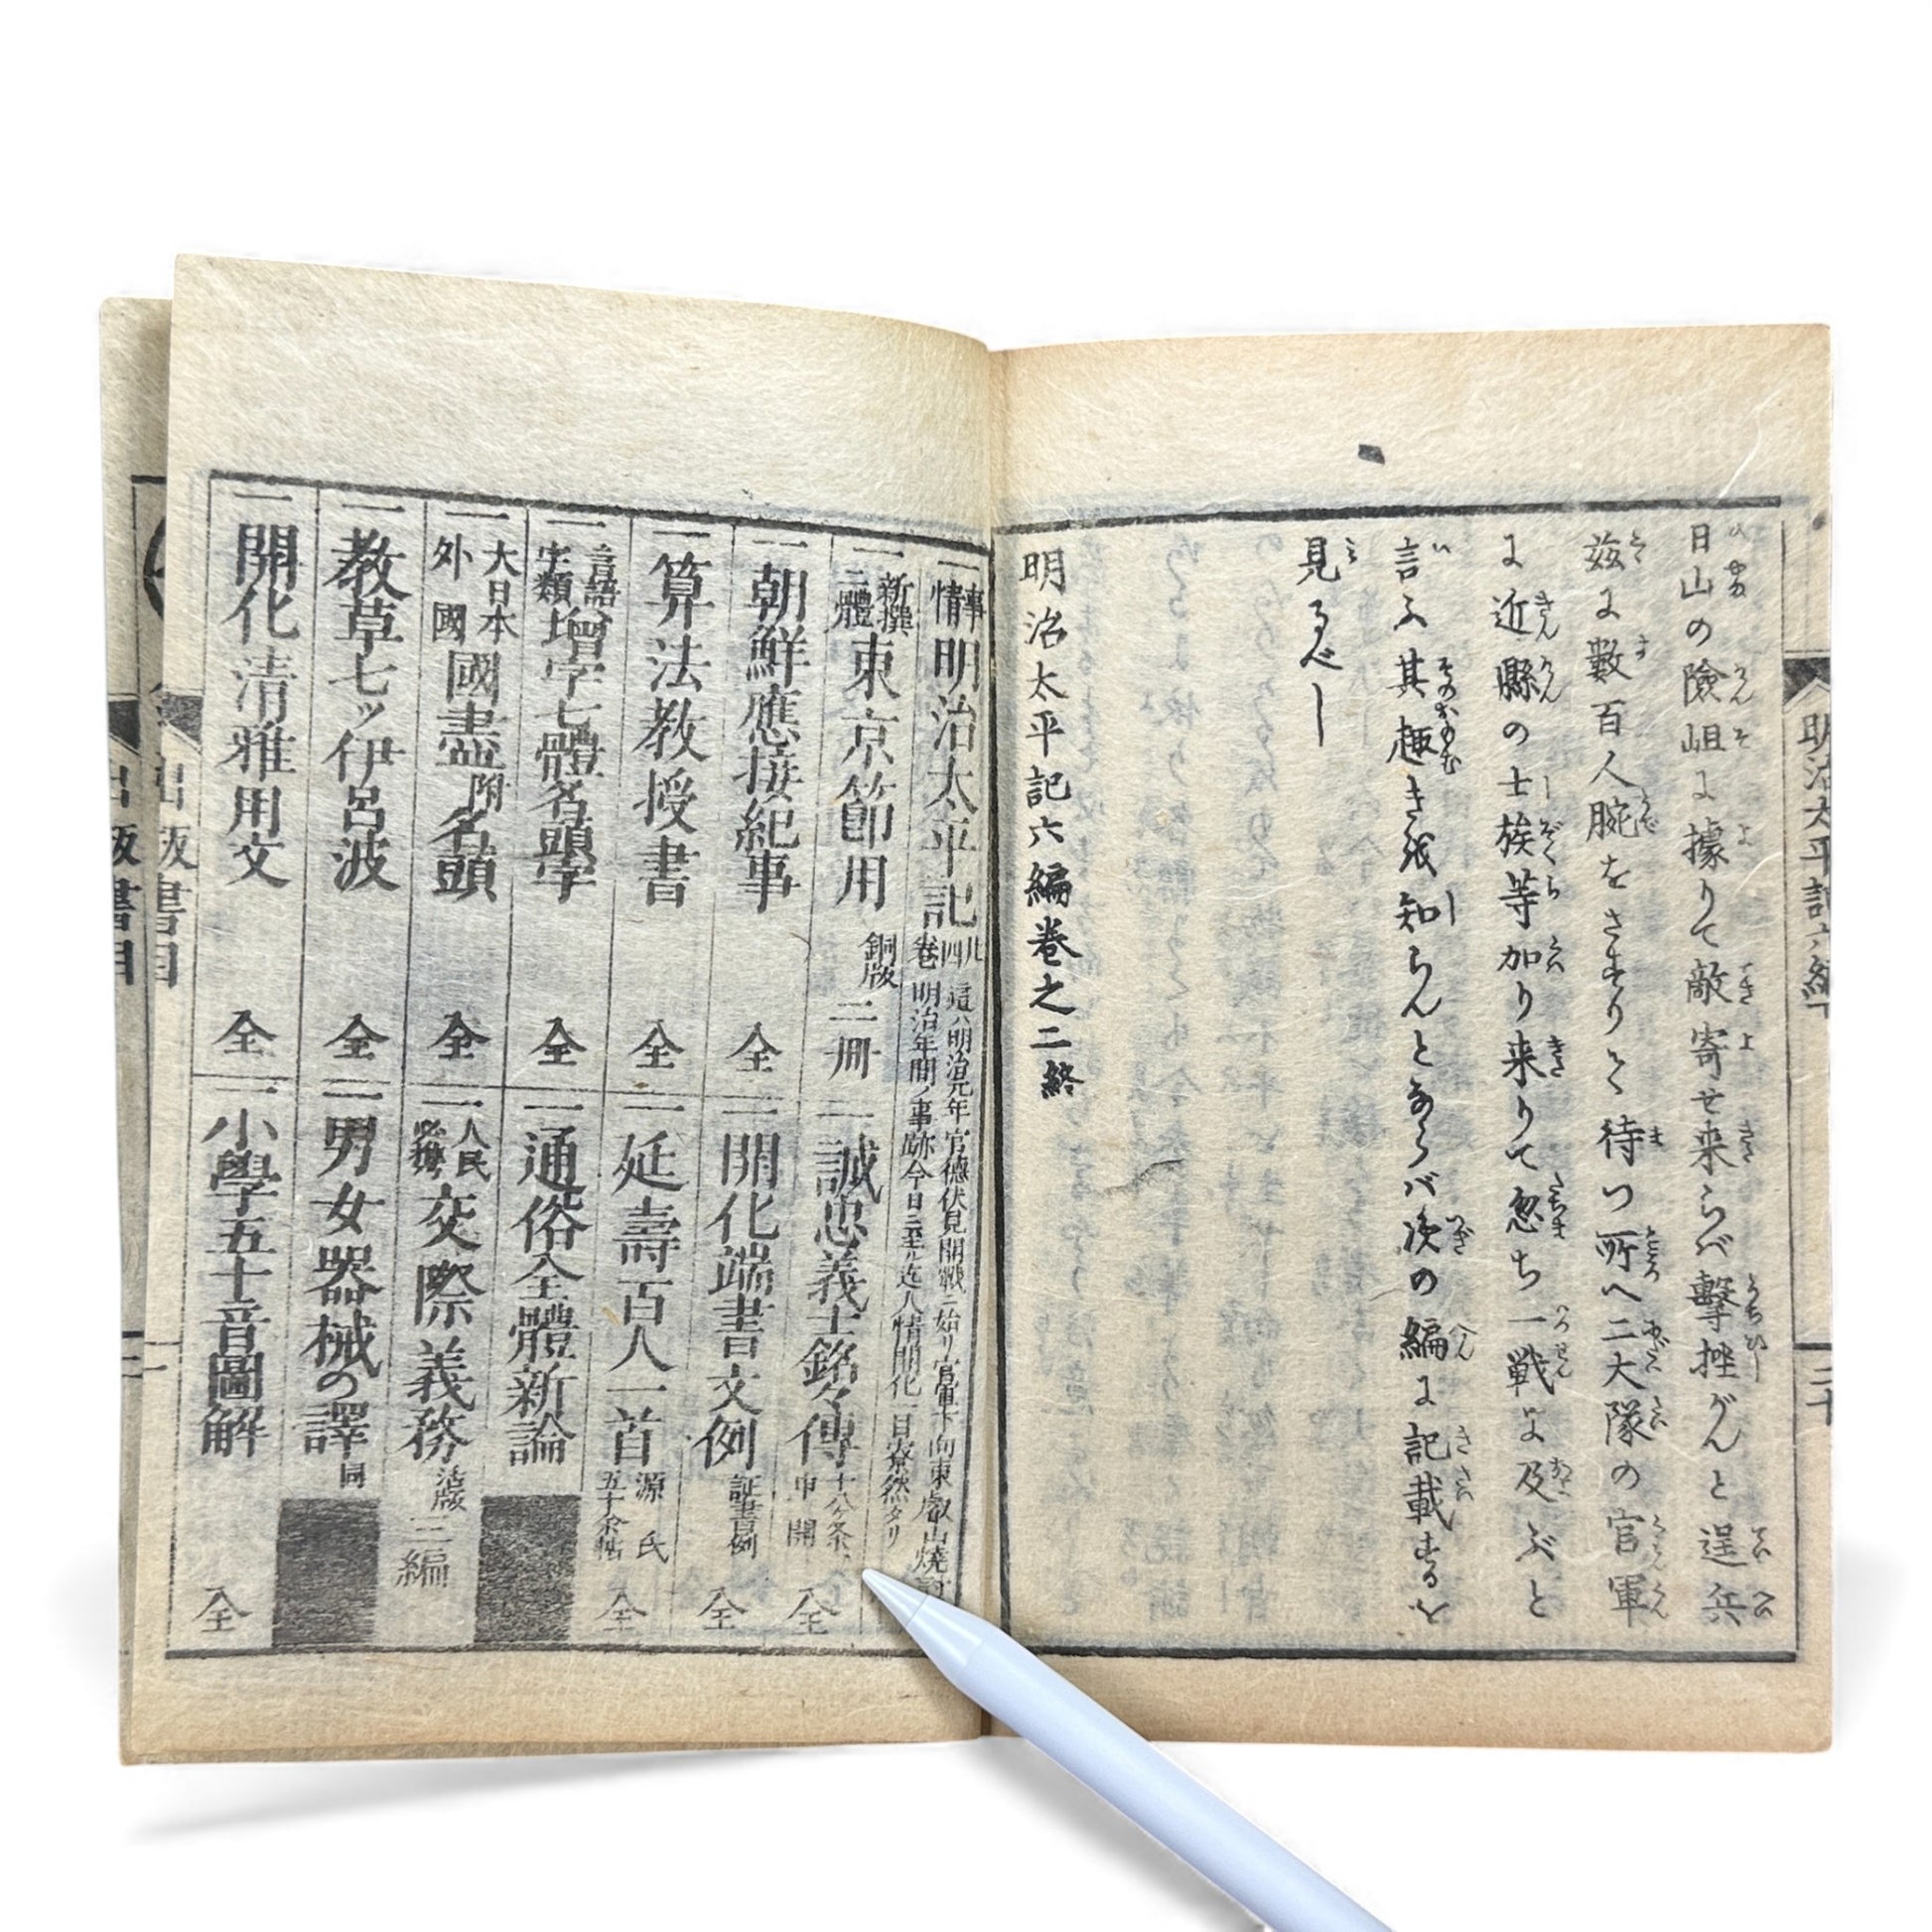 日山の險岨に據りて敵寄せ来らバ擊挫がんと逞兵
玆に數百人腕をさすりて待つ所へ二大隊の官軍
に近縣の士族等加り来りて忽ち一戦に及ぶと
言ふ其趣きを知らんとならバ次の編に記載するを
見るべし
明治太平記六編巻之二終
一事情明治太平記 廿四卷 這ハ明治元年官德伏見開戰ニ始リ官軍下向東叡山燒
明治年間ノ事跡今日ニ至ル迄人情開化一目寮然タリ
一新撰二體東京節用 銅版 二冊
一誠忠義士銘々傳 十八ケ条 申開 全
一朝鮮應接紀事 全
一開化端書文例 証書例 全
一算法教授書 全
一延壽百人一首 源氏五十余帖 全
一言語字類增字七體名頭字 全
一通俗全體新論
一大日本外國國盡附名頭 全
一人民必携交際義務 活版 三編
一教草七ッ伊呂波 全
一男女器械の譯 同
一開化清雅用文 全
一小學五十音圖解 全
出版書目
明治太平記六編下
三十